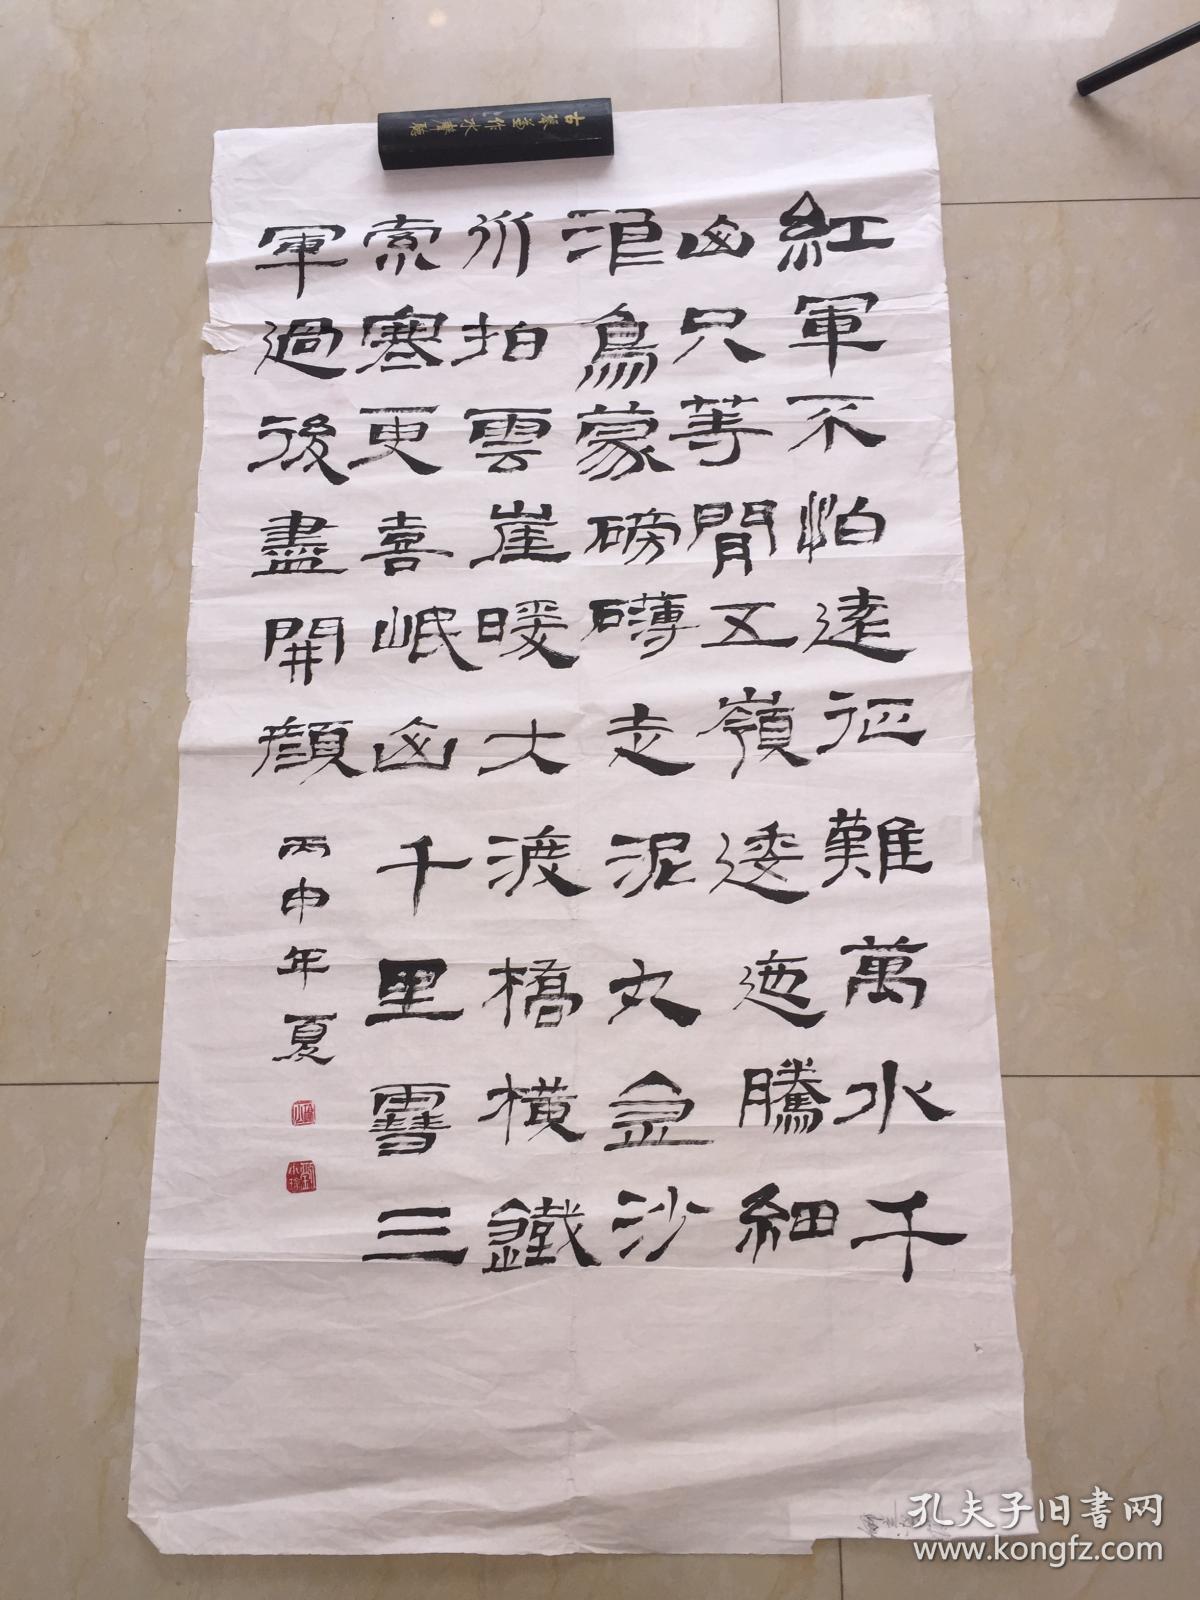 古琴兼作水聲聽
紅軍不怕遠征難萬水千
山只等閒五嶺逶迤騰細
浪烏蒙磅礴走泥丸金沙
水拍雲崖暖大渡橋橫鐵
索寒更喜岷山千里雪三
軍過後盡開顏
丙申年夏
孔夫子旧书网
www.kongfz.com